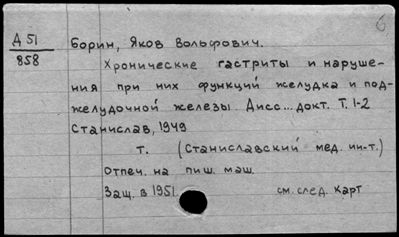 б
Д 51
858
Борин, Яков Вольфович.
Хронические гастриты и наруше-
ния при них функций желудка и под-
желудочной железы. Дисс... докт. Т. 1-2
Станислав, 1949
т. (Станиславский мед. ин-т.)
Отпеч. на пиш. маш.
Защ. в 1951. см. след. карт